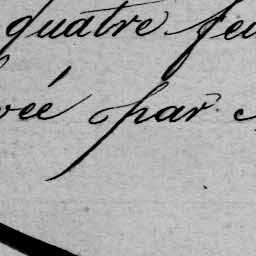 quatre feu
vée par